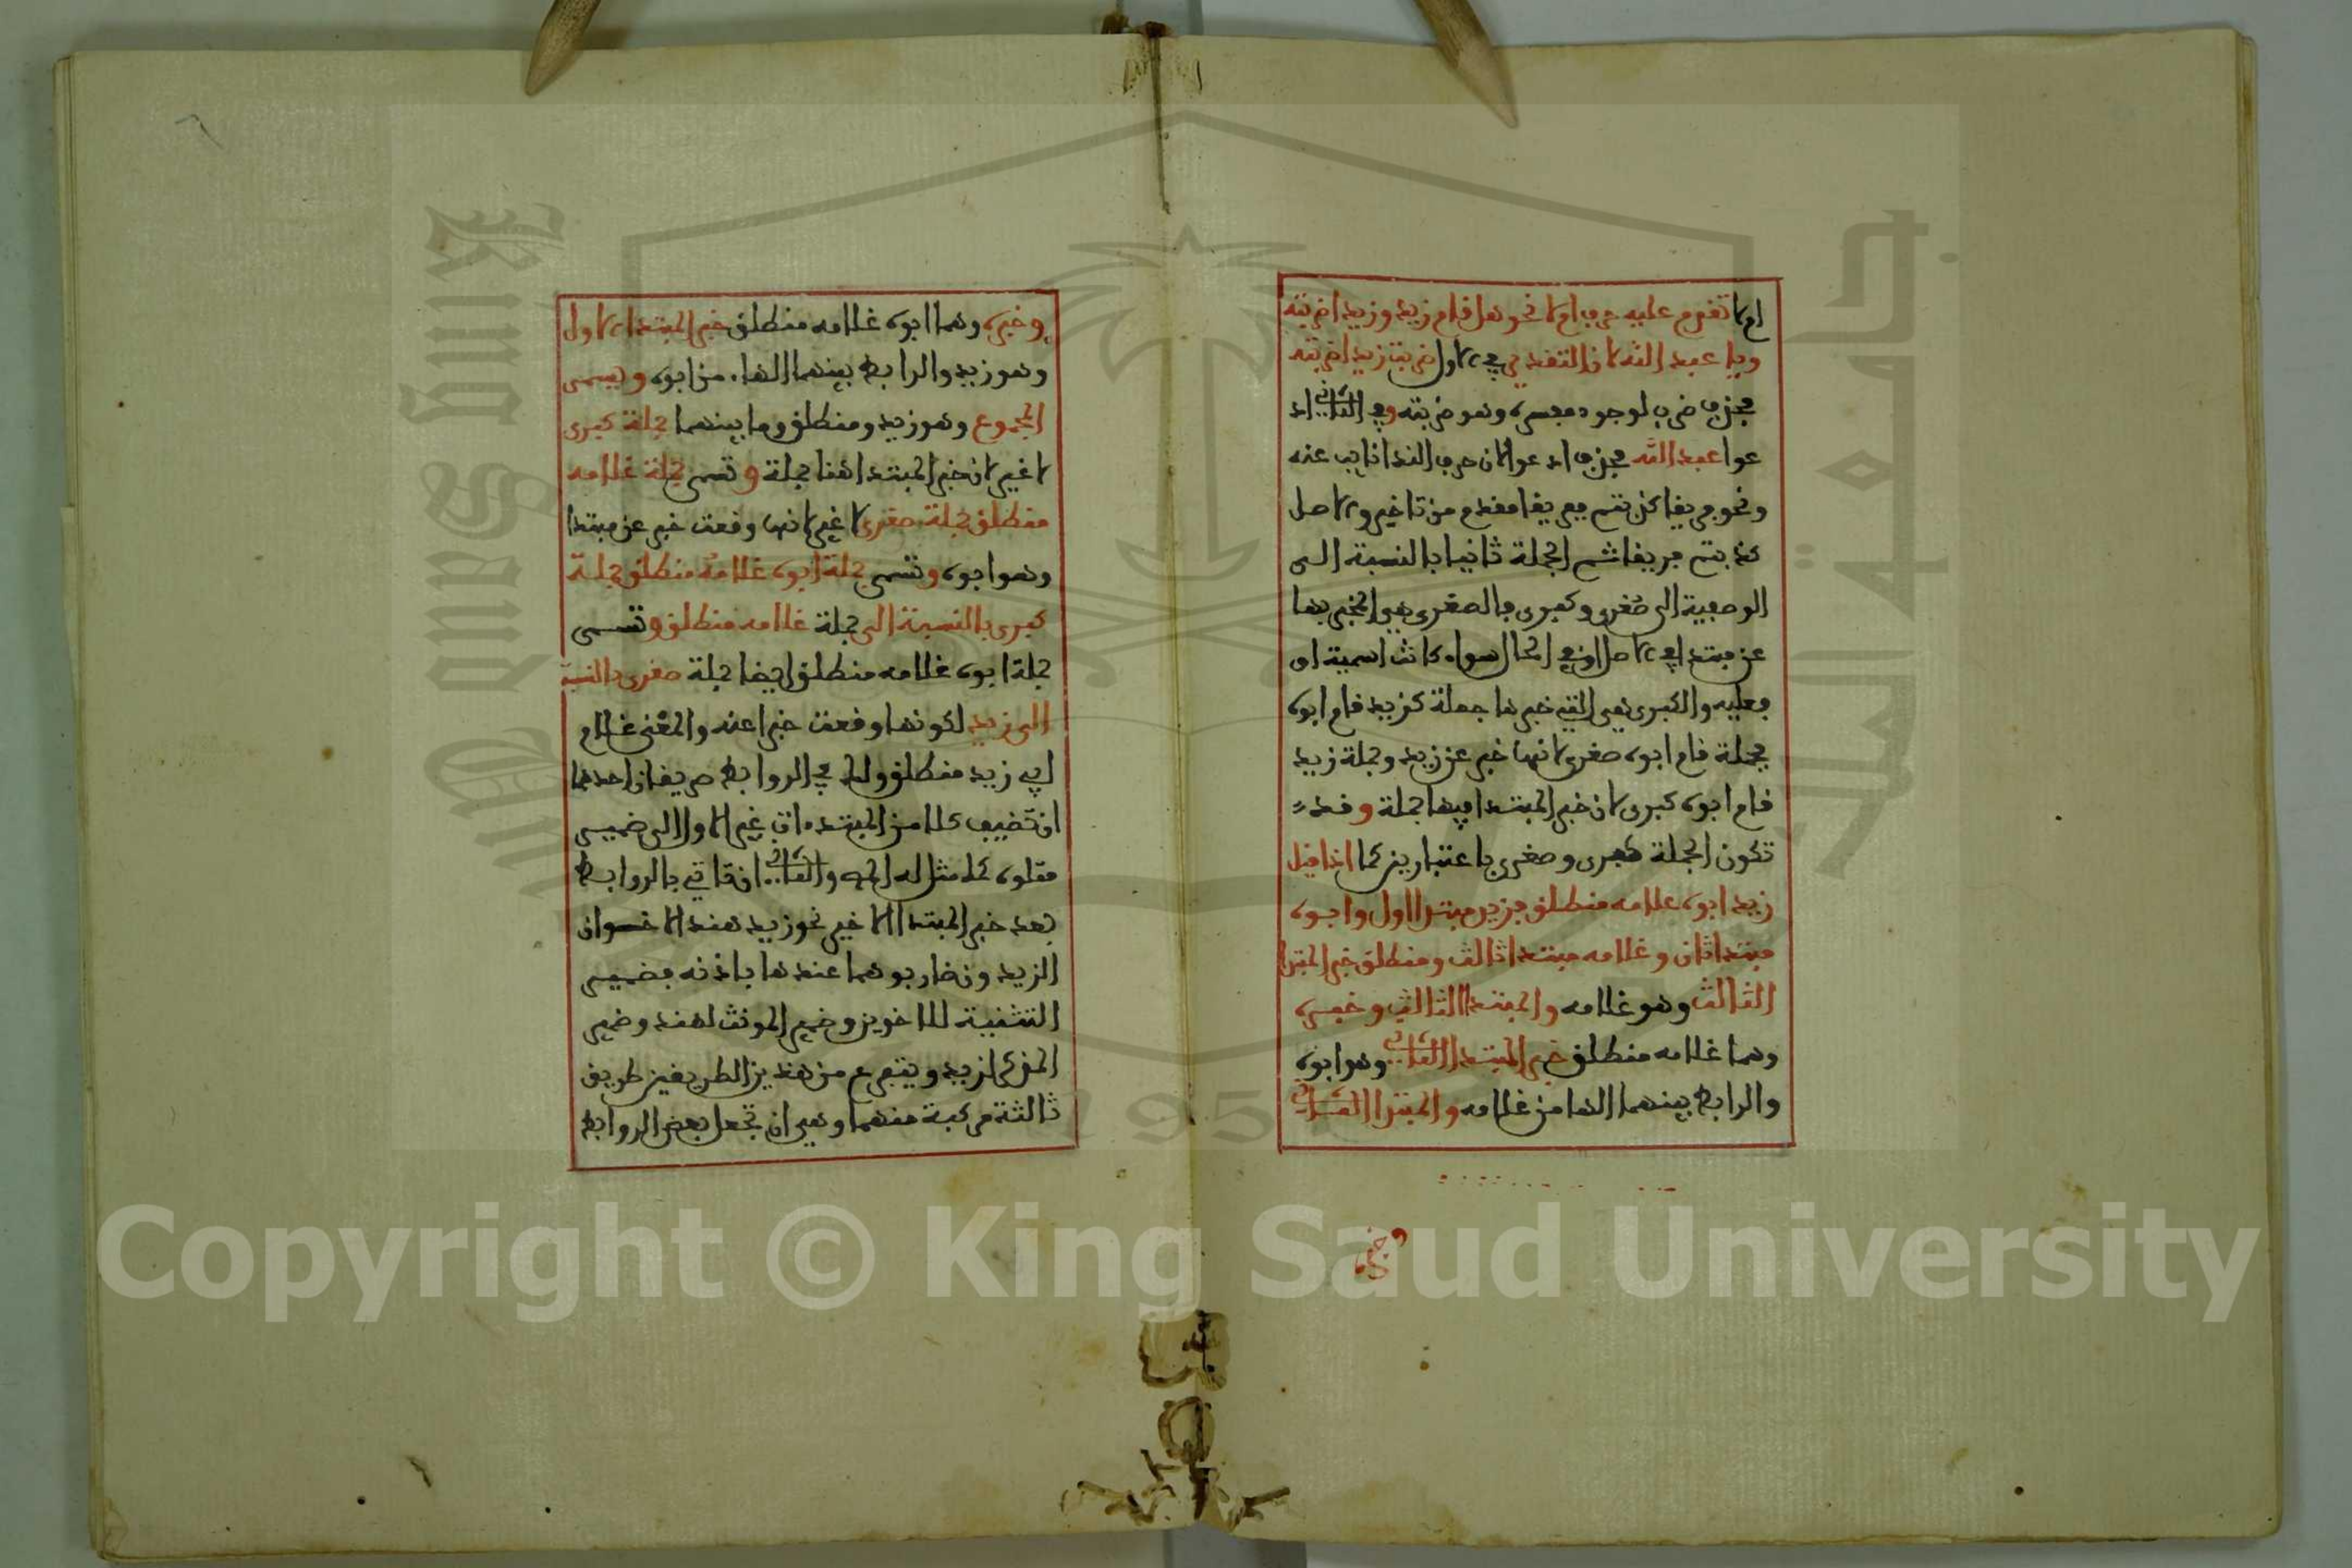 ام لا تقدم عليه حرف ام لا نحو هل قام زيد وزيدا ضربته
ويا عبد الله لان التقدير في الاول ضربت زيدا ضربته
فحذف ضرب لوجود مفسره وهو ضربته وفي الثاني اد
عوا عبد الله فحذف اد عوا لان حرف الندا نايب عنه
ونحو فريقا كذبتم ففريقا مقدم من تاخير والاصل
كذبتم فريقا ثم الجملة ثانيا بالنسبة الى
الوصفية الى صغرى وكبرى فالصغرى هي المخبر بها
عن مبتدا في الاصل او في الحال سواء كانت اسمية او
فعلية والكبرى هي التي خبرها جملة كزيد قام ابوه
فجملة قام ابوه صغرى لانها خبر عن زيد وجملة زيد
قام ابوه كبرى لان خبر المبتدا فيها جملة وقد
تكون الجملة كبرى وصغرى باعتبارين كما اذا قيل
زيد ابوه غلامه منطلق فزيد مبتدا اول وابوه
مبتدا ثان وغلامه مبتدا ثالث ومنطلق خبر المبتدا
الثالث وهو غلامه والمبتدا الثالث وخبره
وهما غلامه منطلق خبر المبتدا الثاني وهو ابوه
والرابط بينهما الها من غلامه والمبتدا الثاني
وخبره
وخبره وهما ابوه غلامه منطلق خبر المبتدا الاول
وهو زيد والرابط بينهما الهاء من ابوه ويسمى
المجموع وهو زيد ومنطلق وما بينهما جملة كبرى
لا غير لان خبر المبتدا هنا جملة وتسمى جملة غلامه
منطلق جملة صغرى لا غير لانها وقعت خبر عن مبتدا
وهو ابوه وتسمى جملة ابوه غلامه منطلق جملة
كبرى بالنسبة الى جملة غلامه منطلق وتسمى
جملة ابوه غلامه منطلق ايضا جملة صغرى بالنسبة
الى زيد لكونها وقعت خبرا عنه والمعنى غلام
ابي زيد منطلق ولك في الروابط طريقان احدهما
ان تضيف كلا من المبتدءات غير الاول الى ضمير
متلوه كما مثل له المص والثاني ان تاتي بالروابط
بعد خبر المبتدا الاخير نحو زيد هند الاخوان
الزيدون ضاربوهما عندها باذنه فضمير
التثنية للاخوين وضمير المونث لهند وضمير
المذكر لزيد ويتفرع من هذين الطريقين طريق
ثالثة مركبة منهما وهي ان تجعل بعض الروابط
Copyright © King Saud University
King Saud University
1957